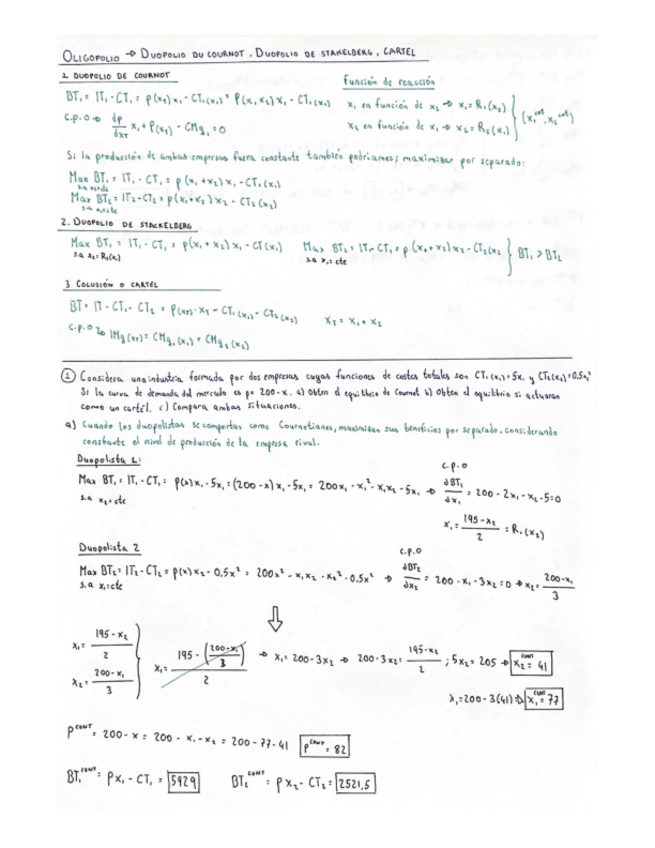 OLIGOPOLIO → DUOPOLIO DU COURNOT, DUOPOLIO DE STAKELBERG, CARTEL
1. DUOPOLIO DE COURNOT
BT₁ = IT₁ - CT₁ = p(xT) x₁ - CT₁(x₁) = P(x₁,x₂) x₁ - CT₁(x₁)
c.p.o → dp/dxT x₁ + P(xT) - CMg₁ = 0
Función de reacción
x₁ en función de x₂ → x₁ = R₁(x₂)
x₂ en función de x₁ → x₂ = R₂(x₁)
Si la producción de ambas empresas fuera constante también podríamos; maximizar por separado:
Max BT₁ = IT₁ - CT₁ = p(x₁+x₂) x₁ - CT₁(x₁)
Max BT₂ = IT₂ - CT₂ = p(x₁+x₂) x₂ - CT₂(x₂)
s.a x₁=cte
2. DUOPOLIO DE STACKELBERG
Max BT₁ = IT₁ - CT₁ = p(x₁+x₂) x₁ - CT(x₁)
s.a x₂ = R₂(x₁)
Max BT₂ = IT - CT₂ = p(x₁+x₂) x₂ - CT₂(x₂ } BT₁ > BT₂
s.a x₁ = cte
3 COLUSIÓN O CARTEL
BT = IT - CT₁ - CT₂ = P(xT) · xT - CT₁(x₁) - CT₂(x₂) xT = x₁ + x₂
c.p.o → IMg(xT) = CMg₁(x₁) = CMg₂(x₂)
① Considera una industria formada por dos empresas cuyas funciones de costes totales son CT₁(x₁)=5x₁ y CT₂(x₂)=0.5x₂²
Si la curva de demanda del mercado es p= 200-x. a) Obten el equilibrio de Cournot b) Obten el equilibrio si actuaran
como un cartél. c) Compara ambas situaciones.
a) Cuando los duopolistas se comportan como Cournotianos, maximizan sus beneficios por separado, considerando
constante el nivel de producción de la empresa rival.
Duopolista 1:
Max BT₁ = IT₁ - CT₁ = p(x)x₁ - 5x₁ = (200-x) x₁ - 5x₁ = 200x₁ - x₁² - x₁x₂ - 5x₁ →
s.a x₂=cte
c.p.o
dBT₁/dx₁ = 200 - 2x₁ - x₂ - 5 = 0
x₁ = 195-x₂/2 = R₁(x₂)
Duopolista 2
Max BT₂ = IT₂ - CT₂ = p(x) x₂ - 0,5x² = 200x² - x₁x₂ - x₂² - 0.5x² →
s.a x₁=cte
c.p.o
dBT₂/dx₂ = 200 - x₁ - 3x₂ = 0 → x₂ = 200-x₁/3
⇩
x₁ = 195-x₂/2
x₂ = 200-x₁/3
x₁ = 195 - (200-x₁/3)/2 → x₁ = 200 - 3x₂ → 200 - 3x₂ = 195-x₂/2 ; 5x₂ = 205 → x₂ = 41
x₁ = 200 - 3(41) → x₁ = 77
p = 200 - x = 200 - x₁ - x₂ = 200 - 77 - 41 p = 82
BT₁ = px₁ - CT₁ = 5929 BT₂ = px₂ - CT₂ = 2521,5